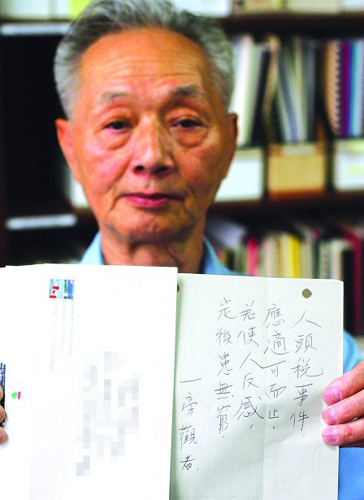 人頭稅事件.
應適可而止.
若使人反感.
定後患無窮
一旁觀者.